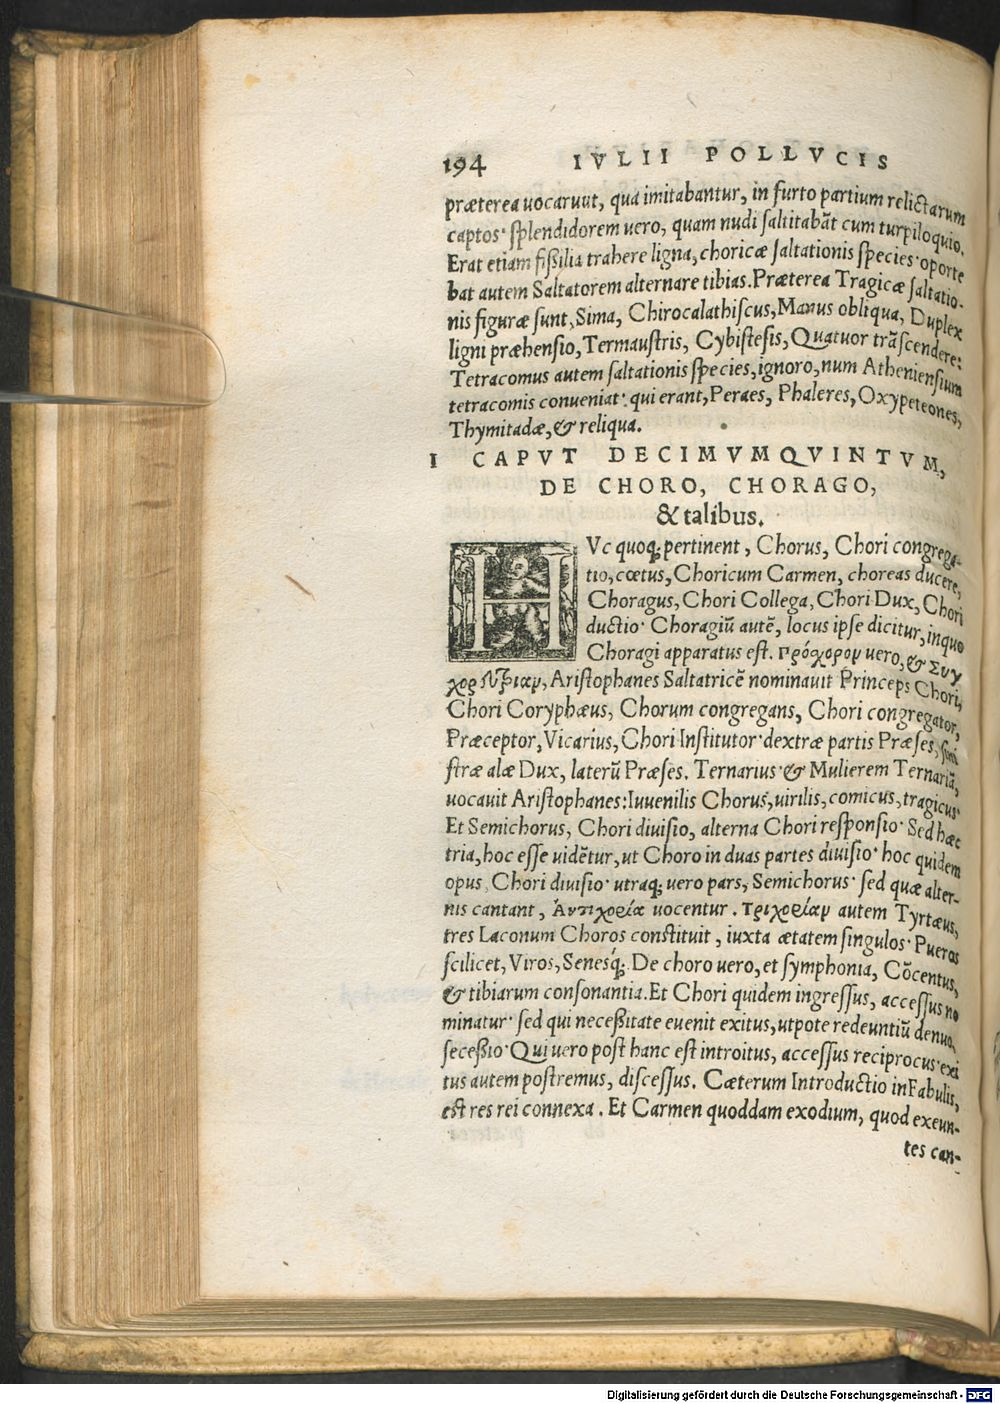 194 IVLII POLLVCIS
præterea uocaruut, qua imitabantur, in furto partium relictarum
captos· splendidorem uero, quam nudi saltitabāt cum turpiloquio.
Erat etiam fißilia trahere ligna, choricæ saltationis species· oporte
bat autem Saltatorem alternare tibias. Præterea Tragicæ saltatio-
nis figuræ sunt, Sima, Chirocalathiscus, Manus obliqua, Duplex
ligni præhensio, Termaustris, Cybistesis, Quatuor trāscendere:
Tetracomus autem saltationis species, ignoro, num Atheniensium
tetracomis conueniat· qui erant, Peraes, Phaleres, Oxypeteones,
Thymitadæ, & reliqua.
I CAPVT DECIMVMQVINTVM,
DE CHORO, CHORAGO,
& talibus.
HVc quoq; pertinent, Chorus, Chori congrega-
tio, cœtus, Choricum Carmen, choreas ducere,
Choragus, Chori Collega, Chori Dux, Chori
ductio· Choragiū autē, locus ipse dicitur, inquo
Choragi apparatus est. Πρόχορον uero, & Συγ
χορεύτριαν, Aristophanes Saltatricē nominauit Princeps Chori,
Chori Coryphæus, Chorum congregans, Chori congregator,
Præceptor, Vicarius, Chori Institutor· dextræ partis Præses, sini
stræ alæ Dux, laterū Præses. Ternarius· & Mulierem Ternariā,
uocauit Aristophanes: Iuuenilis Chorus, uirilis, comicus, tragicus·
Et Semichorus, Chori diuisio, alterna Chori responsio· Sed hæc
tria, hoc esse uidētur, ut Choro in duas partes diuisio· hoc quidem
opus, Chori diuisio· utraq; uero pars, Semichorus· sed quæ alter-
nis cantant, Ἀντιχορία uocentur. Τριχορίαν autem Tyrtæus,
tres Laconum Choros constituit, iuxta ætatem singulos· Pueros
scilicet, Viros, Senesq́;. De choro uero, et symphonia, Cōcentus,
& tibiarum consonantia. Et Chori quidem ingressus, accessus no
minatur· sed qui neceßitate euenit exitus, utpote redeuntiū denuo,
seceßio· Qui uero post hanc est introitus, accessus reciprocus· exi
tus autem postremus, discessus. Cæterum Introductio in Fabulis,
est res rei connexa. Et Carmen quoddam exodium, quod exeun-
tes can-
Digitalisierung gefördert durch die Deutsche Forschungsgemeinschaft - DFG